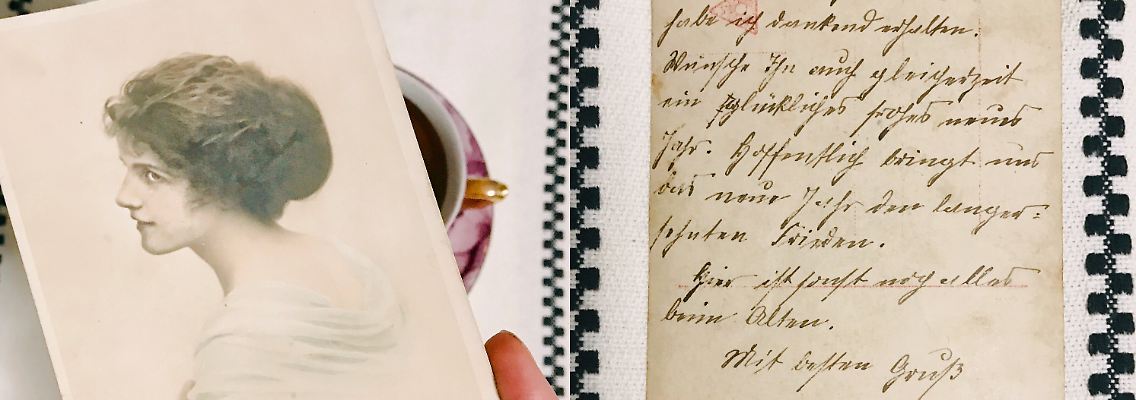 habe ich dankend erhalten.
Wünsche Ihn auch gleicherzeit
ein glückliches frohes neues
Jahr. Hoffentlich bringt uns
das neue Jahr den langer-
sehnten Frieden.
Hier ist sonst noch alles
beim Alten.
Mit besten Gruß